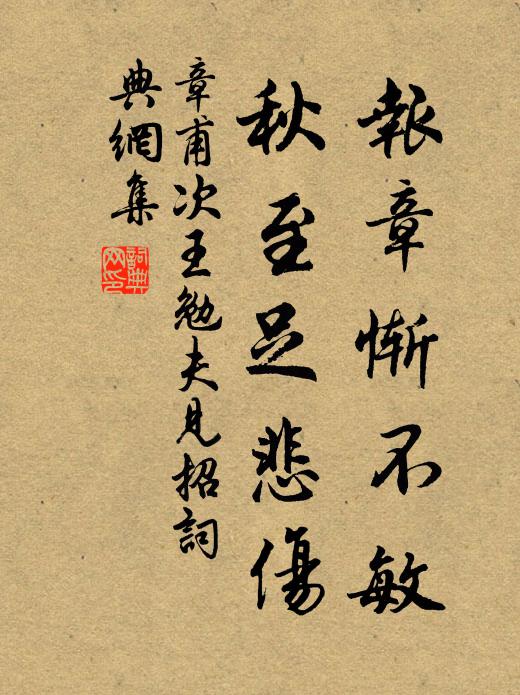 報章慚不敏
秋至足悲傷
章甫次王勉夫見招詞
典網集
詞典網印